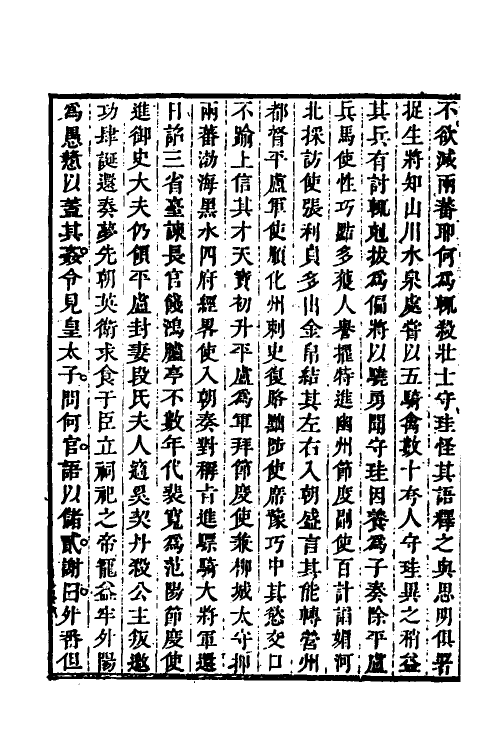 不欲滅兩蕃耶何爲輒殺壯士守珪怪其語釋之與思明俱署
捉生將知山川水泉處嘗以五騎禽數十夸人守珪異之稍益
其兵有討輒剋拔爲偏將以驍勇聞守珪因養爲子奏除平盧
兵馬使性巧黠多獲人譽擢特進幽州節度副使百計諂媚河
北採訪使張利貞多出金帛結其左右入朝盛言其能轉營州
都督平盧軍使順化州刺史復賂黜陟使席豫巧中其慾交口
不踰上信其才天寶初升平盧爲軍拜節度使兼柳城太守押
兩蕃渤海黑水四府經畧使入朝奏對稱旨進驃騎大將軍還
日詔三省臺諫長官餞鴻臚亭不數年代裴寬爲范陽節度使
進御史大夫仍領平盧封妻段氏夫人適奚契丹殺公主叛邀
功肆誕還奏夢先朝英衛求食于臣立祠祀之帝寵益牢外陽
爲愚憃以蓋其姦令見皇太子問何官語以儲貳謝曰外番但